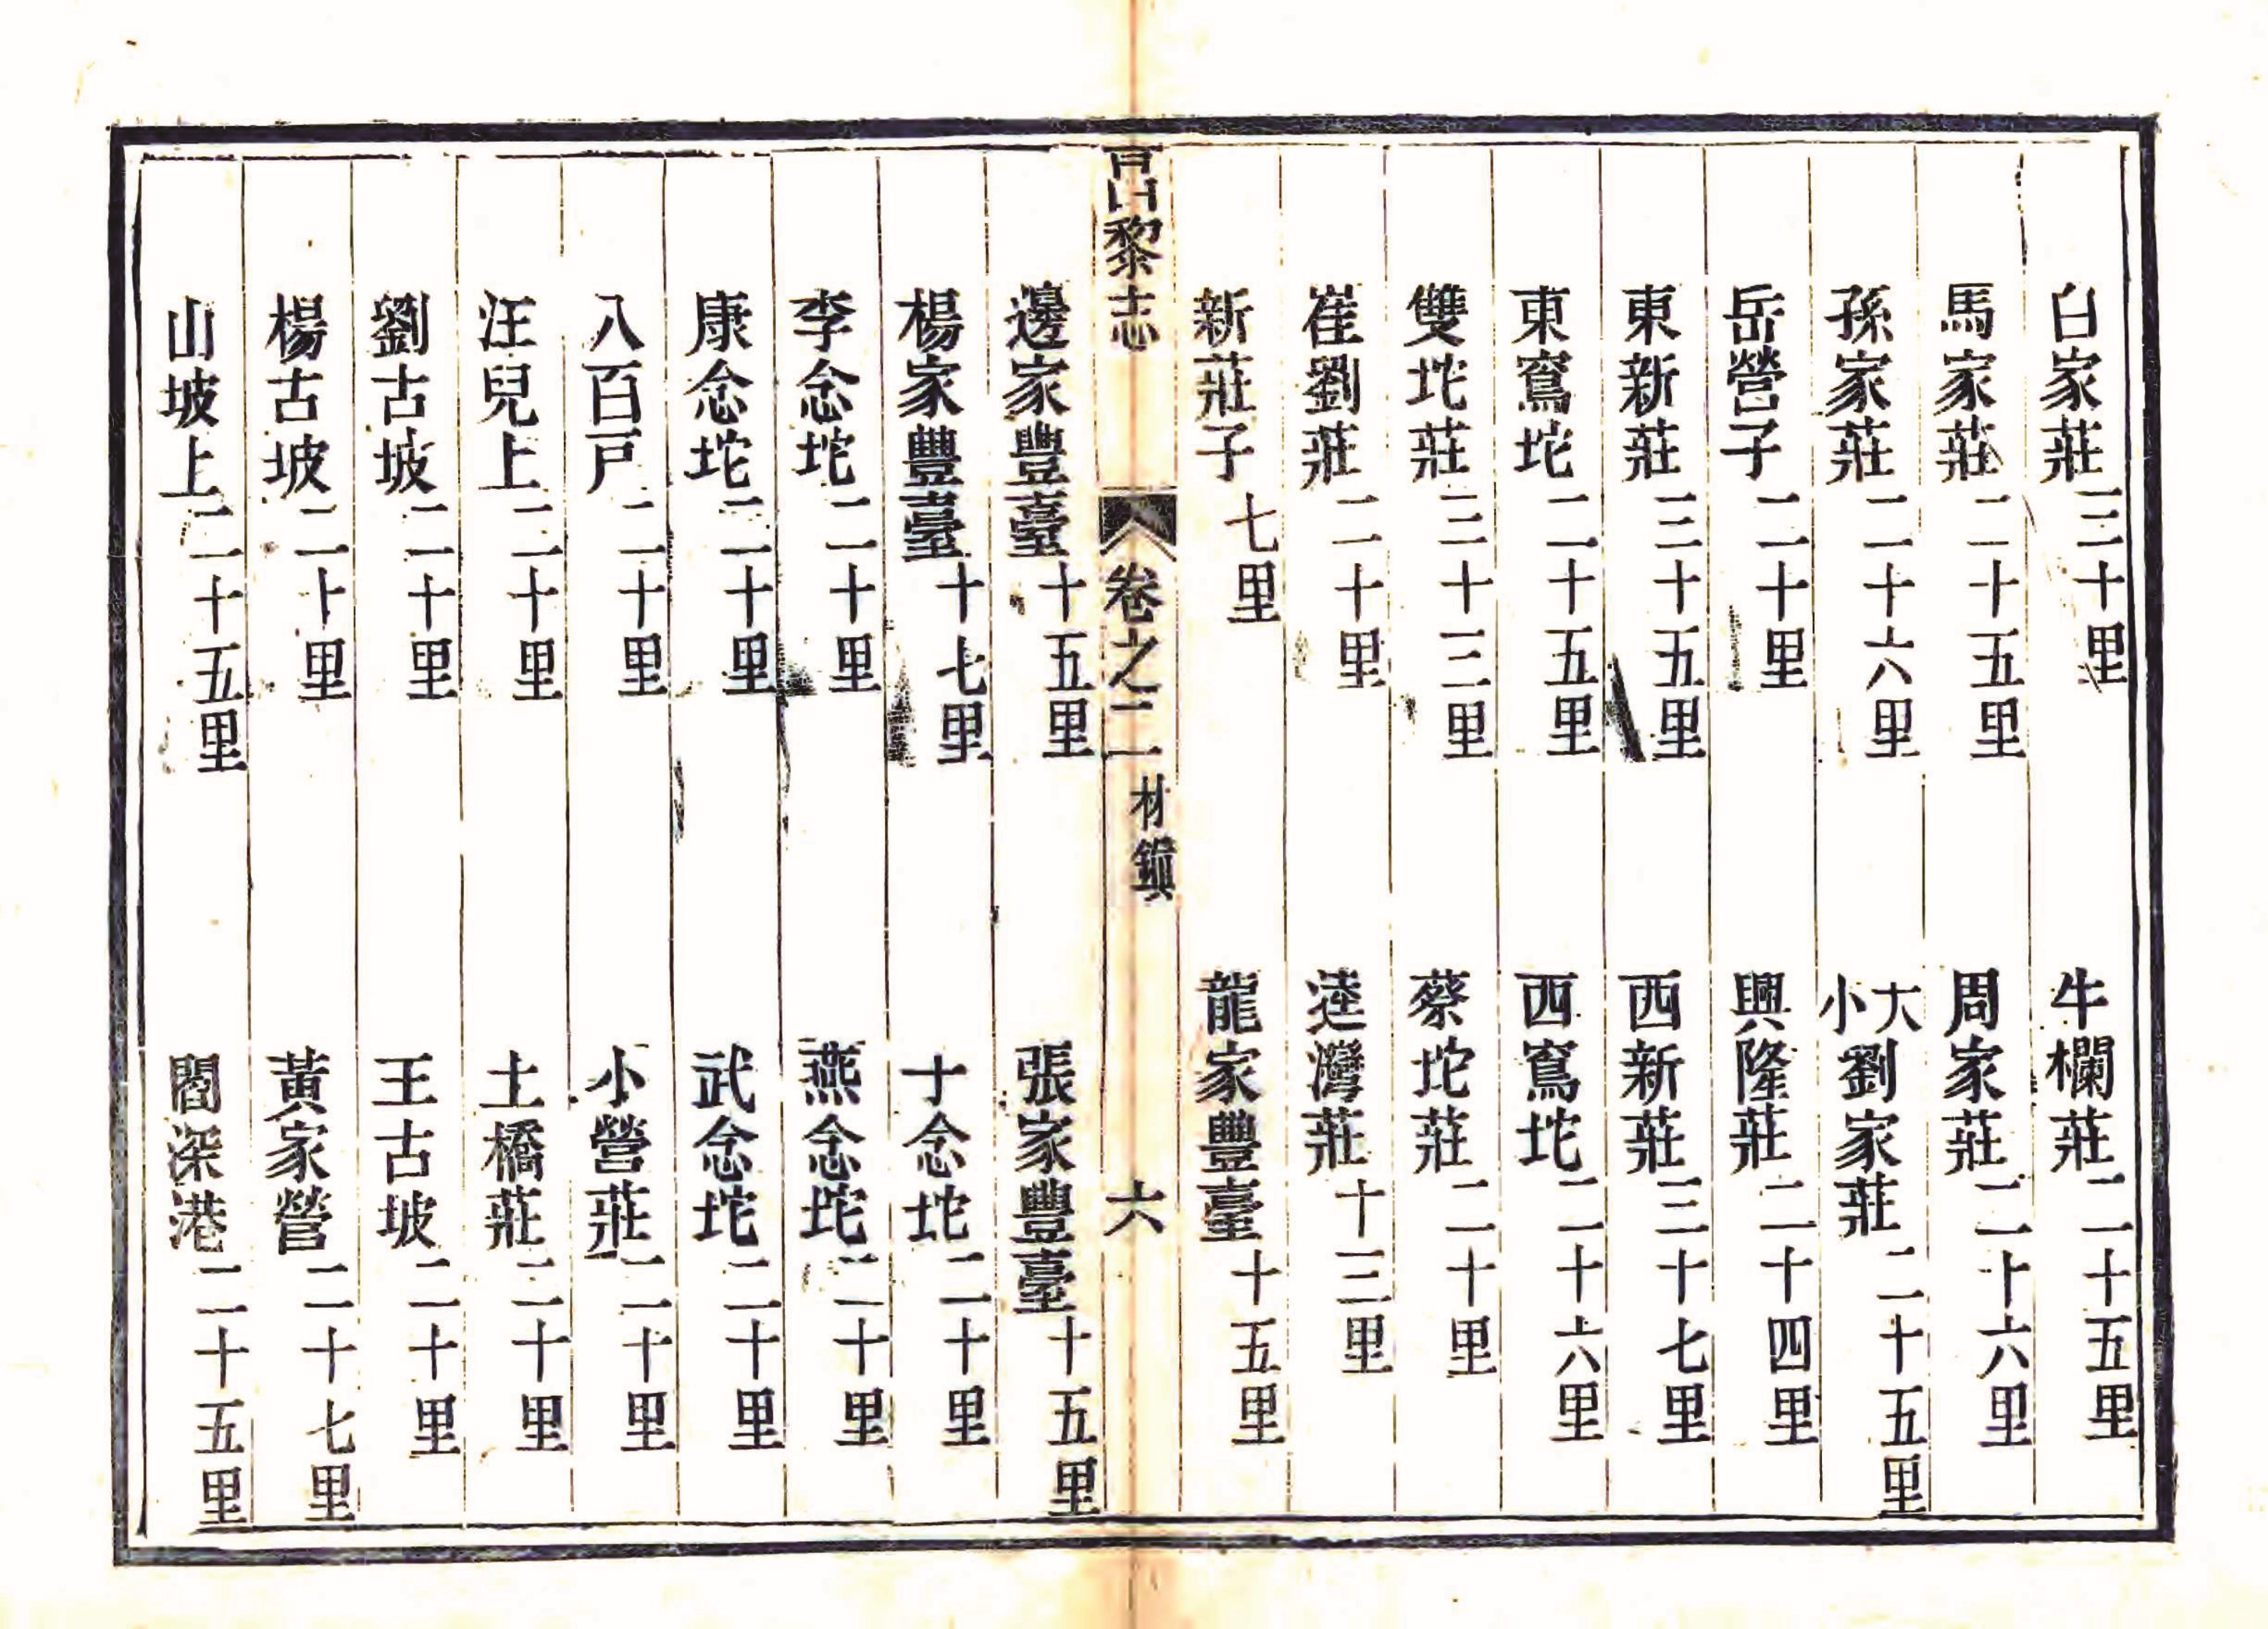 白家莊三十里 牛欄莊二十五里
馬家莊二十五里 周家莊二十六里
孫家莊二十六里 大小劉家莊二十五里
岳營子二十里 興隆莊二十四里
東新莊三十五里 西新莊三十七里
東窵坨二十五里 西窵坨二十六里
雙坨莊三十三里 蔡坨莊二十里
崔劉莊二十里 逵灣莊十三里
新莊子七里 龍家豐臺十五里
昌黎志 卷之二 村鎮 六
邊家豐臺十五里 張家豐臺十五里
楊家豐臺十七里 十念坨二十里
李念坨二十里 燕念坨二十里
康念坨二十里 武念坨二十里
八百戸二十里 小營莊二十里
汪兒上二十里 土橋莊二十里
劉古坡二十里 王古坡二十里
楊古坡二十里 黃家營二十七里
山坡上二十五里 閻深港二十五里